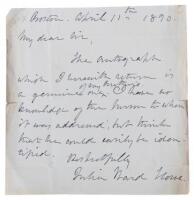 Boston. April 11th 1890.
My dear Sir,
The autograph
which I herewith return is
a genuine one
of my
I have no
knowledge of the person to whom
it was addressed, but think
that he could easily be iden-
tified.
Respectfully
Julia Ward Howe.